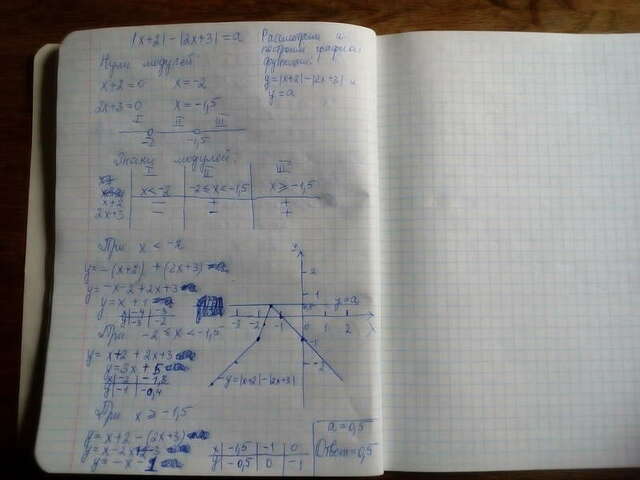 |x+2| - |2x+3| = a
Рассмотрим и
построим графики
функций:
y=|x+2|-|2x+3| и
y=a
Нули модулей
x+2=0 x=-2
2x+3=0 x=-1,5
I II III
-2 -1,5
Знаки модулей:
I II III
x<-2 -2≤x<-1,5 x≥-1,5
x+2 - + +
2x+3 - - +
При x<-2
y=-(x+2)+(2x+3)
y=-x-2+2x+3
y=x+1
x -4 -3
y -3 -2
При -2≤x<-1,5
y=x+2+2x+3
y=3x+5
x -2 -1,8
y -1 -0,4
При x≥-1,5
y=x+2-(2x+3)
y=x-2x+2-3
y=-x-1
x -1,5 -1 0
y -0,5 0 -1
y
2
1
0,5
y=a
-3 -2 -1 0 1 2 x
-1
-2
y=|x+2|-|2x+3|
a=0,5
Ответ: 0,5